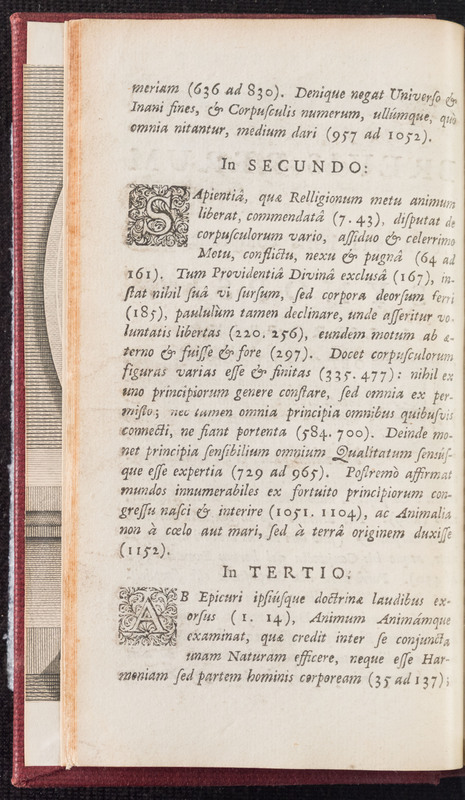 meriam (636 ad 830). Denique negat Universo &
Inani fines, & Corpusculis numerum, ullúmque, quò
omnia nitantur, medium dari (957 ad 1052).
In SECUNDO:
SApientiâ, quæ Relligionum metu animum
liberat, commendatâ (7. 43), disputat de
corpusculorum vario, assiduo & celerrimo
Motu, conflictu, nexu & pugnâ (64 ad
161). Tum Providentiâ Divinâ exclusâ (167), in-
stat nihil suâ vi sursum, sed corpora deorsùm ferri
(185), paululùm tamen declinare, unde asseritur vo-
luntatis libertas (220. 256), eundem motum ab æ-
terno & fuisse & fore (297). Docet corpusculorum
figuras varias esse & finitas (335. 477): nihil ex
uno principiorum genere constare, sed omnia ex per-
misto; nec tamen omnia principia omnibus quibusvis
connecti, ne fiant portenta (584. 700). Deinde mo-
net principia sensibilium omnium Qualitatum sensús-
que esse expertia (729 ad 965). Postremò affirmat
mundos innumerabiles ex fortuito principiorum con-
gressu nasci & interire (1051. 1104), ac Animalia
non à cœlo aut mari, sed à terrâ originem duxisse
(1152).
In TERTIO.
AB Epicuri ipsiúsque doctrinæ laudibus ex-
orsus (1. 14), Animum Animámque
examinat, quæ credit inter se conjuncta
unam Naturam efficere, neque esse Har-
moniam sed partem hominis corpoream (35 ad 137);